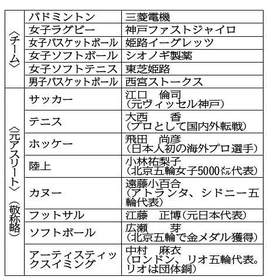 〈チーム〉
バドミントン 三菱電機
女子ラグビー 神戸ファストジャイロ
女子バスケットボール 姫路イーグレッツ
女子ソフトボール シオノギ製薬
女子ソフトテニス 東芝姫路
男子バスケットボール 西宮ストークス
〈元アスリート〉(敬称略)
サッカー 江口 倫司
(元ヴィッセル神戸)
テニス 大西 香
(プロとして国内外転戦)
ホッケー 飛田 尚彦
(日本人初の海外プロ選手)
陸上 小林祐梨子
(北京五輪女子5000㍍代表)
カヌー 遠藤小百合
(アトランタ、シドニー五
輪代表)
フットサル 江藤 正博(元日本代表)
ソフトボール 広瀬 芽
(北京五輪で金メダル獲得)
アーティスティッ
クスイミング 中村 麻衣
(ロンドン、リオ五輪代表。
リオは団体銅)